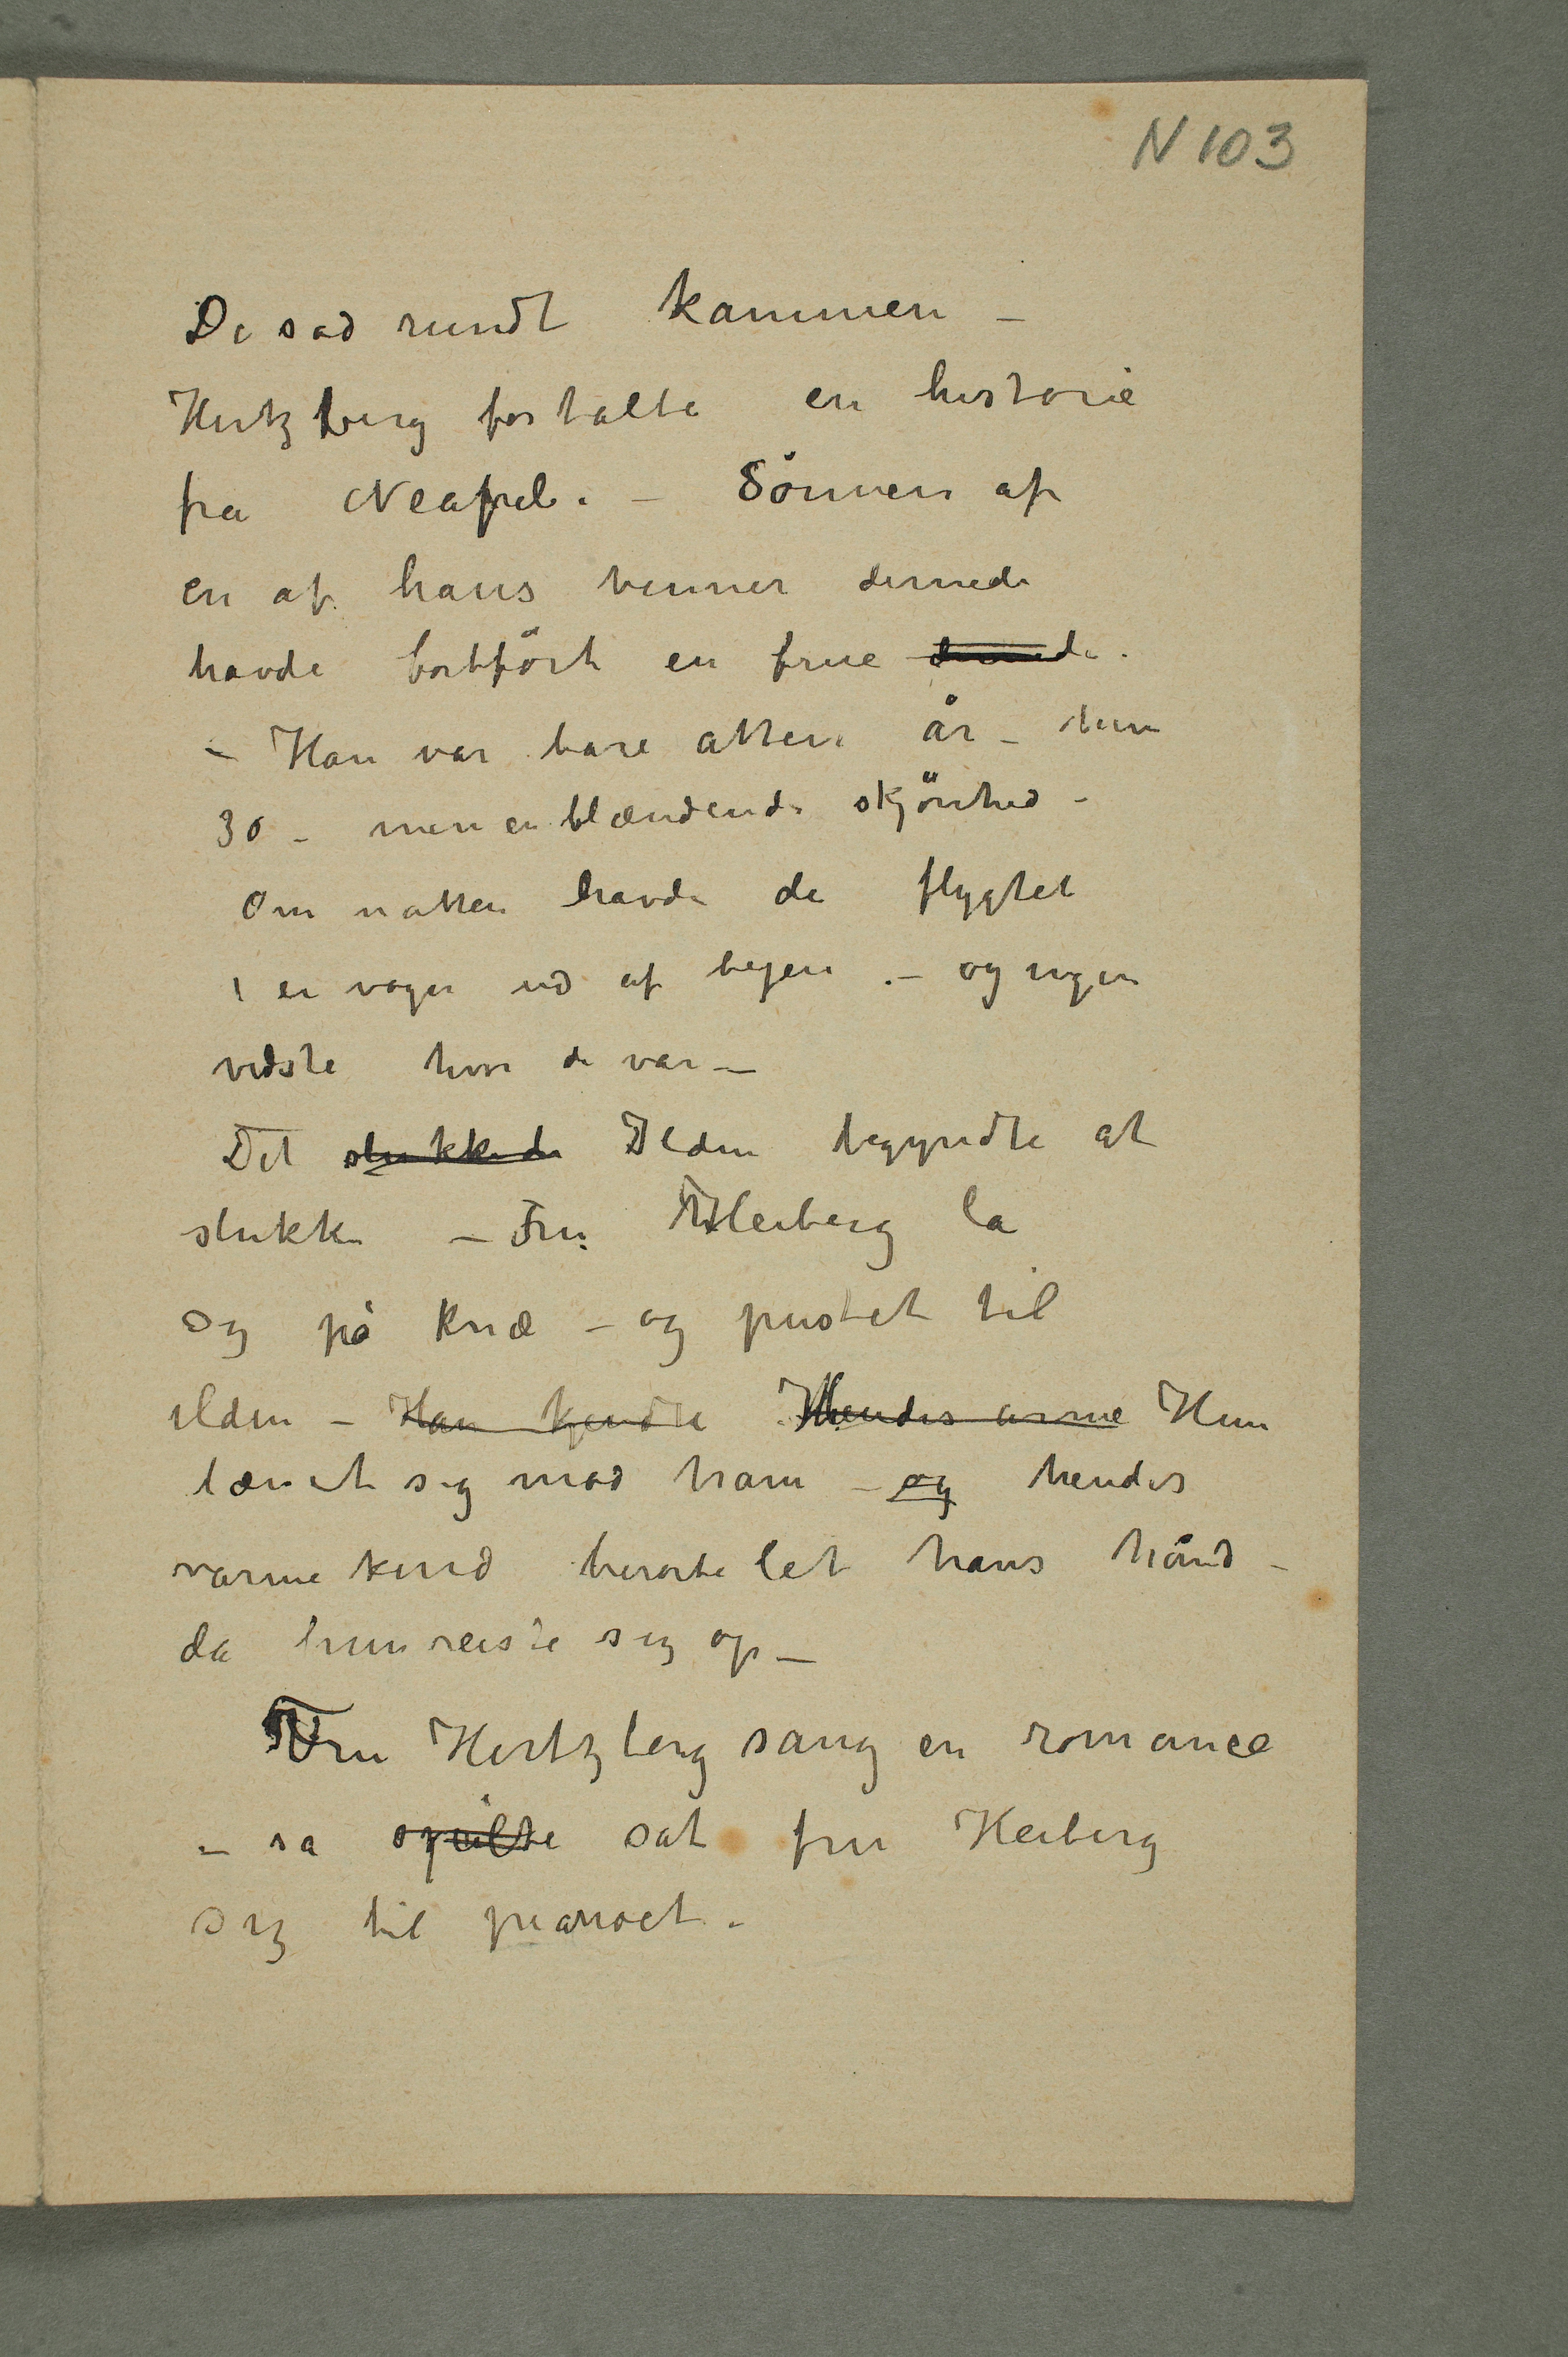 N 103
De sad rundt kaminen –
Hertzberg fortalte en historie
fra Neapel. – Sönnen af
en af hans venner dernede
havde bortfört en frue dernede.
– Han var bare atten år – hun
30 – men en blændende skjönhed –
Om natten havde de flygtet
i en vogn ud af byen. – og ingen
vidste hvor de var –
Det slukkede Ilden begyndte at
slukke – Fru Heiberg la
sig på knæ – og pustet til
ilden – Han kjendte Hendes arme Hun
lænet sig mod ham – og hendes
varme kind berørte let hans hånd –
da hun reiste sig op –
Fru Hertzberg sang en romance
– sa spilte sat fru Heiberg
sig til pianoet.